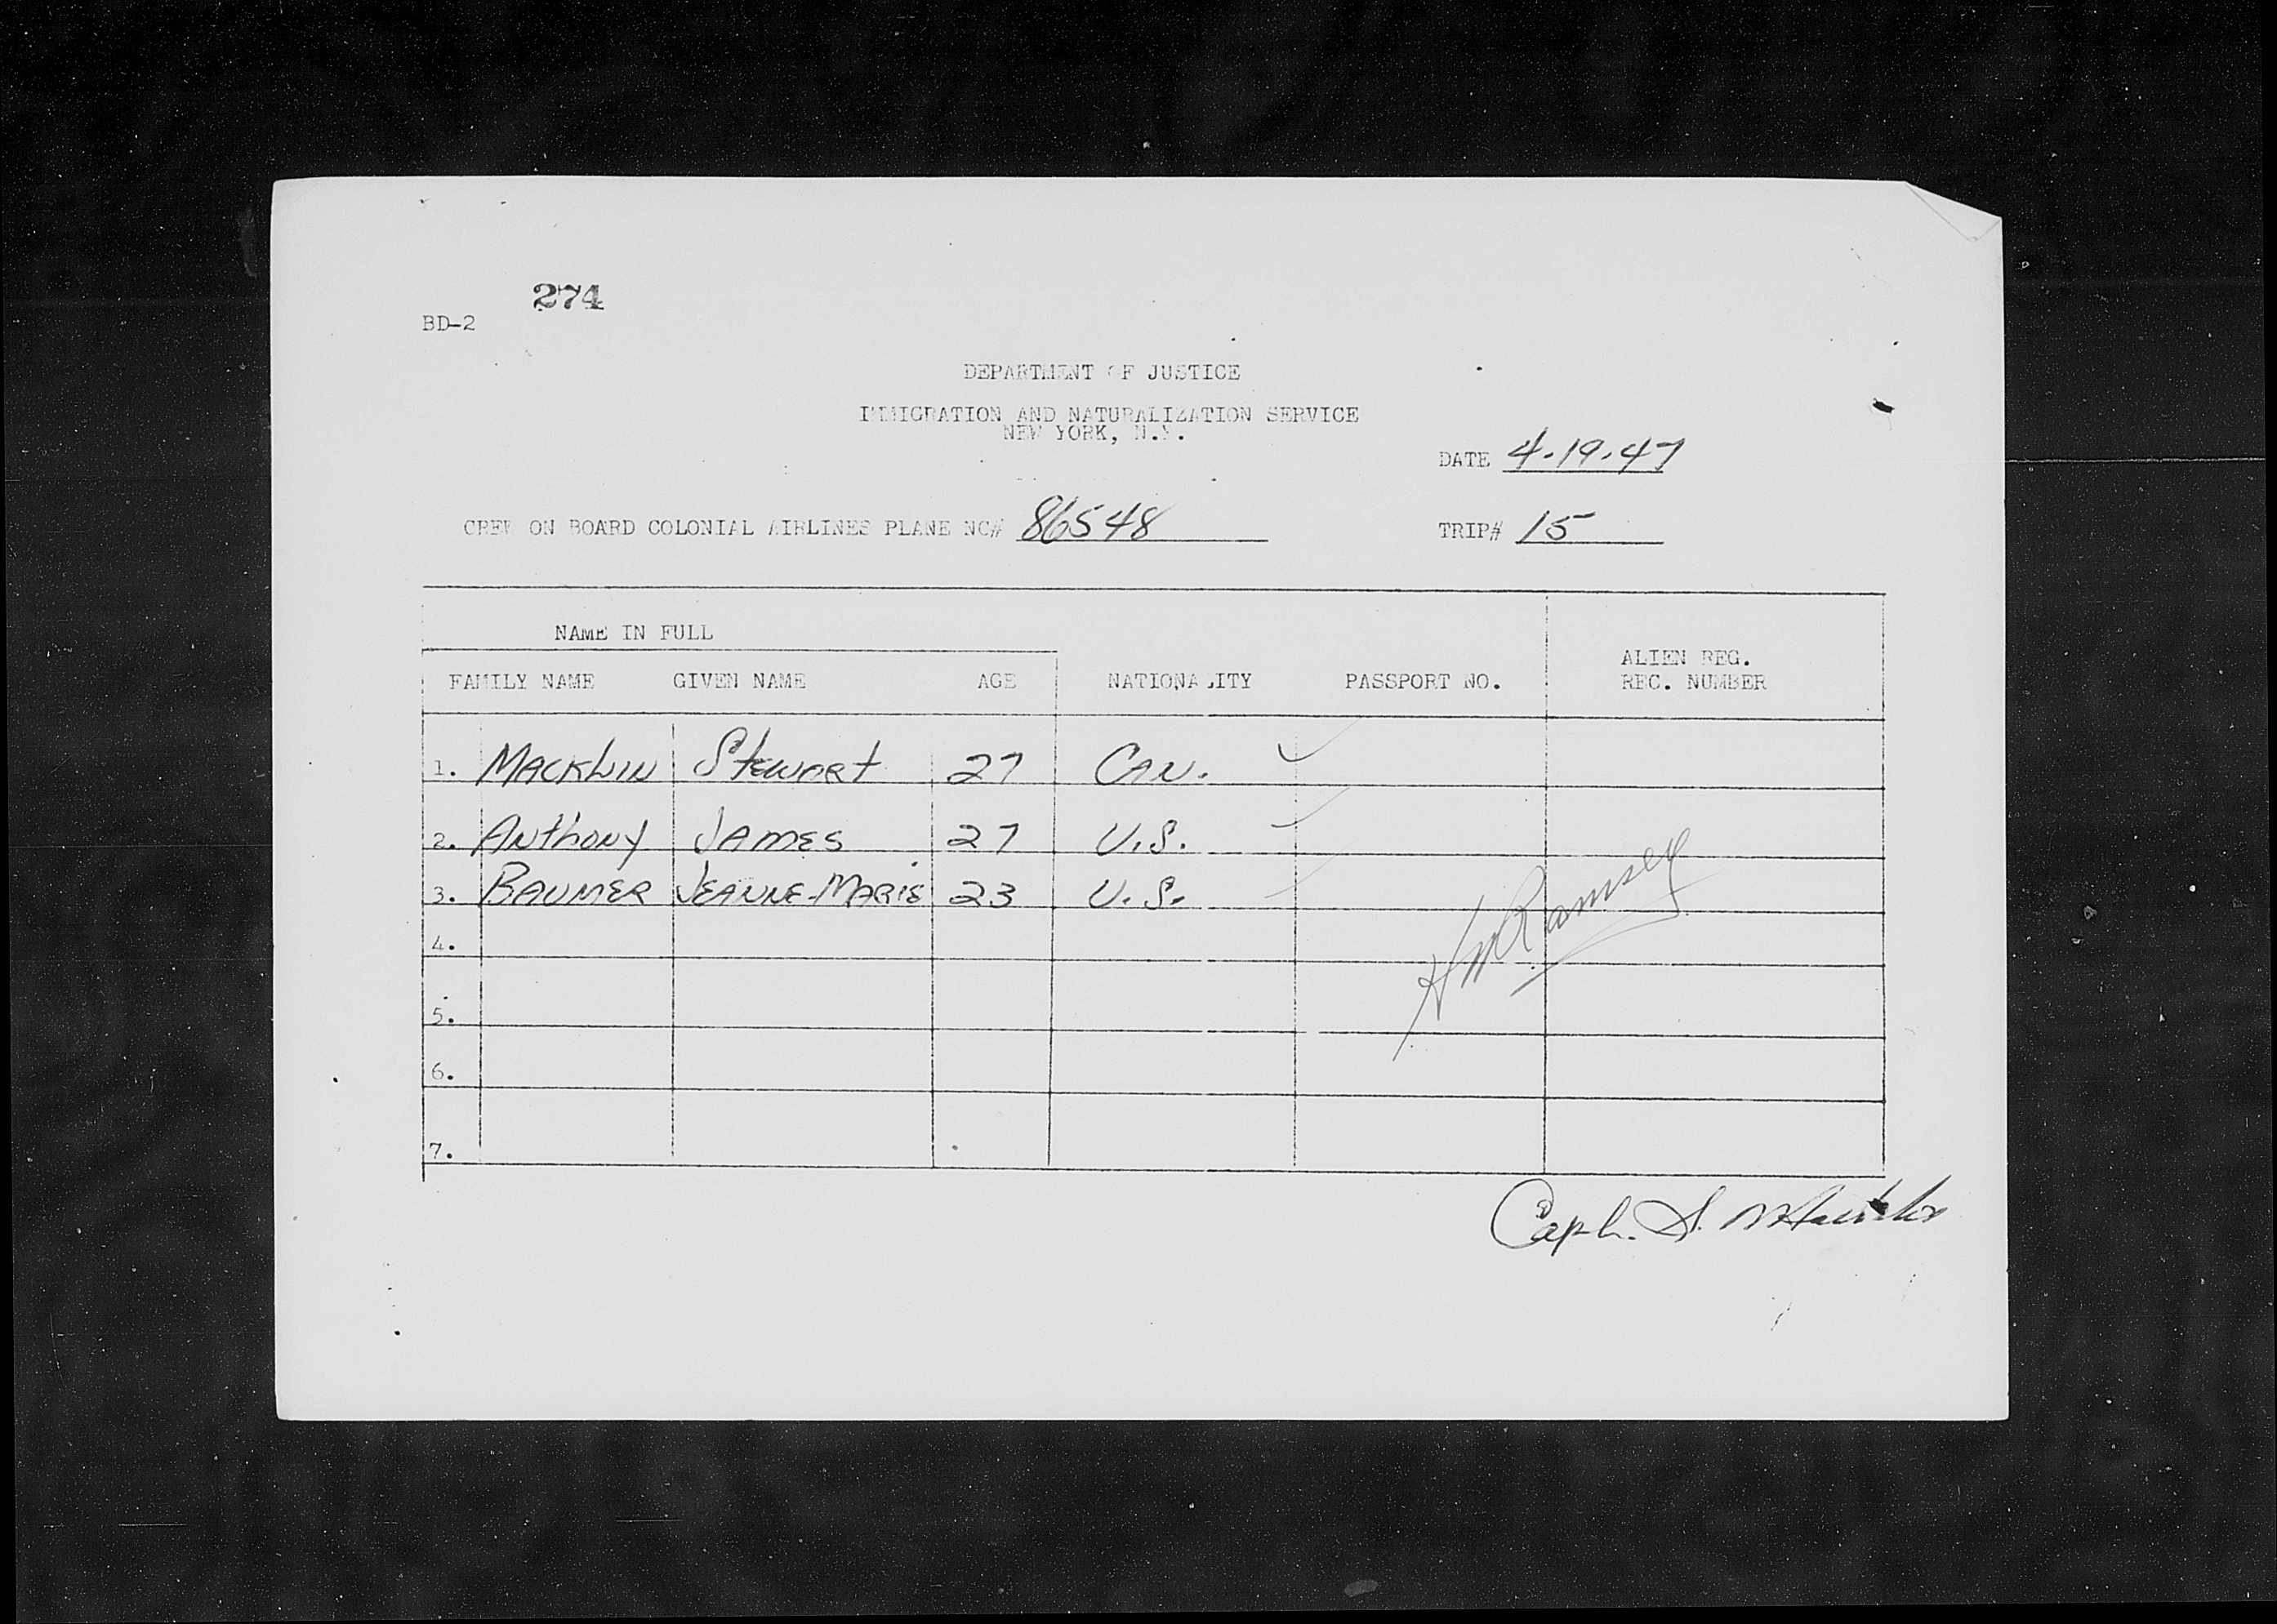 274
BD-2
DEPARTMENT OF JUSTICE
IMMIGRATION AND NATURALIZATION SERVICE
NEW YORK, N.Y.
DATE 4.19.47
CREW ON BOARD COLONIAL AIRLINES PLANE NC# 86548 TRIP# 15
NAME IN FULL
ALIEN REG.
FAMILY NAME GIVEN NAME AGE NATIONALITY PASSPORT NO. REC. NUMBER
1. MACKLIN Stewart 27 CAN.
2. ANthoNy JAMES 27 U.S.
3. BAUMER JEANNE-MARIE 23 U.S.
4.
5.
6.
7.
Ramsey
Capt. S.